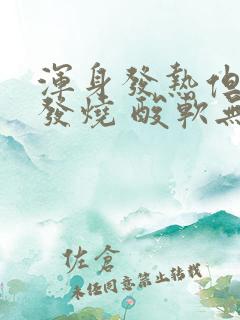 渾身發熱但
發燒 酸軟無
佐倉
未經同意禁止轉載